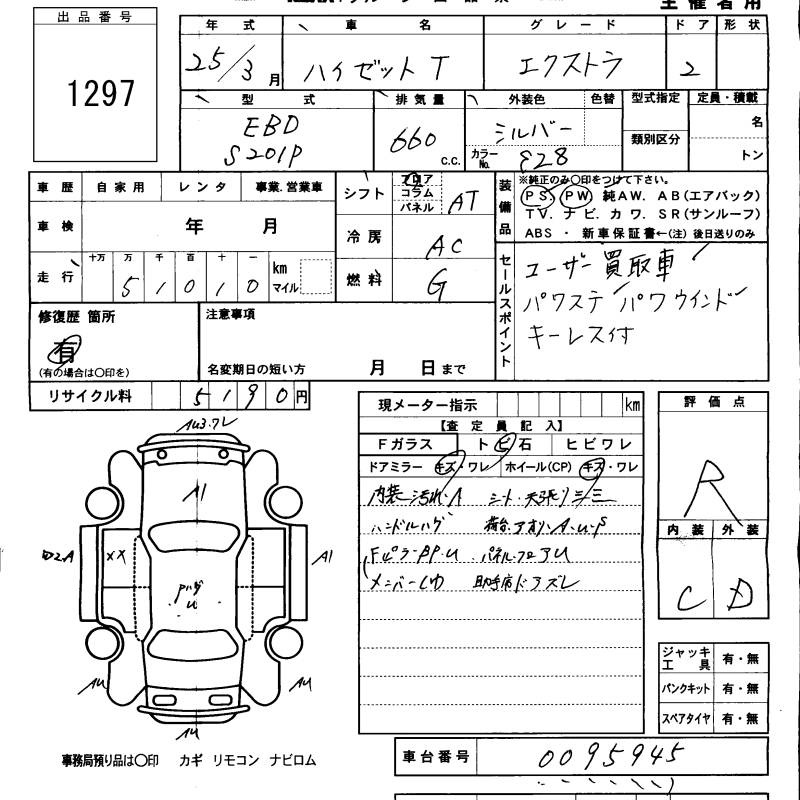 主催者用
出品番号
1297
年式 車名 グレード ドア 形状
25/3月 ハイゼットT エクストラ 2
型式 排気量 外装色 色替 型式指定 定員・積載
EBD
S201P 660 c.c. シルバー カラーNo. 類別区分 名
トン
車歴 自家用 レンタ 事業.営業車
車検 年 月
走行 十万 万 千 百 十 一 km マイル
5 1 0 1 0
シフト フロア コラム パネル AT
冷房 AC
燃料 G
装備品
※純正のみ○印をつけて下さい。
PS. PW 純AW. AB(エアバック)
TV. ナビ. カワ. SR(サンルーフ)
ABS ・ 新車保証書←(注) 後日送りのみ
セールスポイント
ユーザー買取車
パワステ パワウインド
キーレス付
修復歴 箇所
有
(有の場合は○印を)
注意事項
名変期日の短い方 月 日まで
リサイクル料 5190円
現メーター指示 km
【査定員記入】
Fガラス トビ石 ヒビワレ
ドアミラー キズ・ワレ ホイール(CP) キズ・ワレ
内装汚れ・A シート・天張り
ハンドルハゲ 荷台.アオリ・A・U・P
Fピラー・PP・U パネル・フロアU
メンバー
評価点
R
内装 外装
C D
AU3.ワレ
A1
A1
××
AU
AU
AU
ジャッキ
工具 有・無
パンクキット 有・無
スペアタイヤ 有・無
事務局預り品は○印 カギ リモコン ナビロム
車台番号 0095945